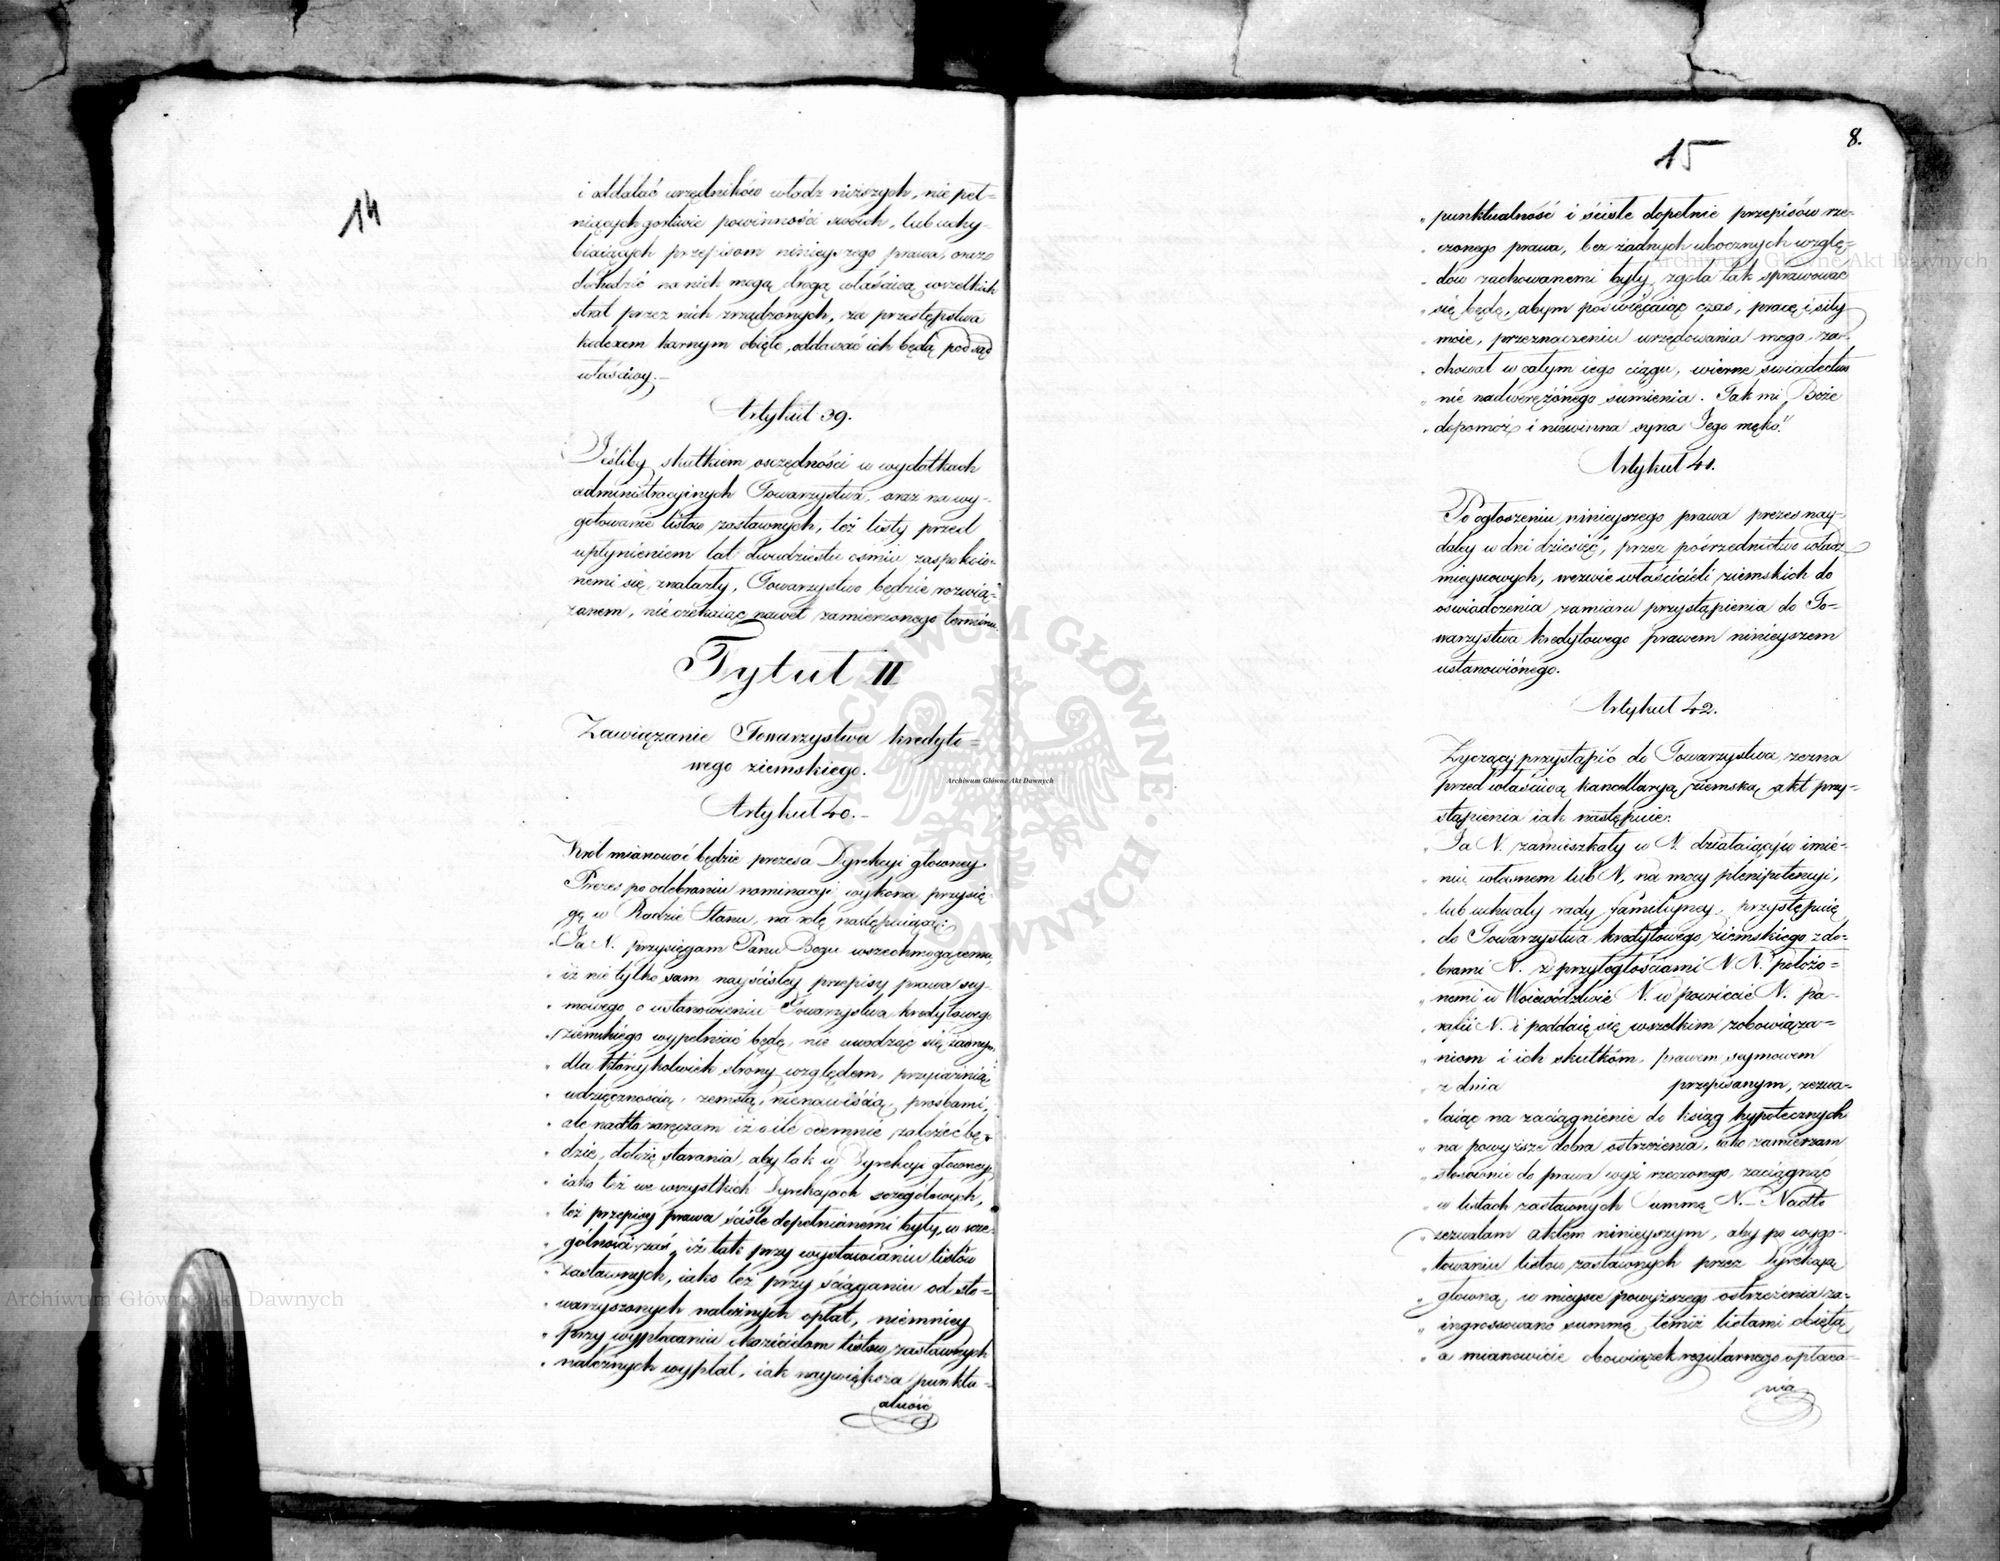 14
i oddalać urzędników władz niższych, nie peł-
niących gorliwie powinności swoich, lub uchy-
biaiących przepisom ninieyszego prawa, oraz
dochodzić na nich mogą drogą właściwą wszelkich
strat przez nich zrządzonych, za przestępstwa
kodexem karnym obięte, oddawać ich będą pod sąd
właściwy.—
Artykuł 39.
Jeśliby skutkiem oszczędności w wydatkach
administracyjnych Towarzystwa, oraz na wy-
gotowanie listów zastawnych, też listy przed
upłynieniem lat dwudziestu ośmiu zaspokoio-
nemi się znalazły, Towarzystwo będzie rozwią-
zanem, nie czekaiąc nawet zamierzonego terminu.
Tytuł II
Zawiązanie Towarzystwa kredyto=
wego ziemskiego.
Artykuł 40.—
Król mianować będzie prezesa Dyrekcyi główney.
Prezes po odebraniu nominacyi wykona przysię-
gę w Radzie Stanu, na rotę następuiącą:
„Ja N. przysięgam Panu Bogu wszechmogącemu,
„ iż nie tylko sam nayściśley przepisy prawa sey-
„ mowego o ustanowieniu Towarzystwa kredytowego
„ ziemskiego wypełniać będę, nie uwodząc się żadnym,
„ dla któreykolwiek strony względem, przyiaźnią
„ wdzięcznością, zemstą, nienawiścią, prośbami,
„ ale nadto zaręczam iż o ile odemnie zależeć bę-
„ dzie, dołożę starania, aby tak w Dyrekcyi główney,
„ iako też we wszystkich Dyrekcyach szczegółowych,
„ też przepisy prawa ściśle dopełnianemi były, w szcze-
„ gólności zaś, iż tak przy wystawianiu listów
„ zastawnych, iako też przy ściąganiu od sto-
„ warzyszonych należnych opłat, niemniey
„ przy wypłacaniu okazicielom listów zastawnych
„ należnych wypłat, iak naywiększa punktu-
alność
8.
15
„ punktualność i ściśle dopełnie przepisów rze-
„ czonego prawa, bez żadnych ubocznych wzglę-
„ dów zachowanemi były, zgoła tak sprawować
„ się będę, abym poświęcaiąc czas, pracę i siły
„ moie, przeznaczeniu urzędowania mego, za-
„ chował w całym iego ciągu, wierne świadectwo
„ nie nadwerężónego sumienia. Tak mi Boże
„ dopomóż i niewinna syna Jego męko".
Artykuł 41.
Po ogłoszeniu ninieyszego prawa prezes nay-
daley w dni dziesięć, przez pośrednictwo władz
mieyscowych, wezwie właścicieli ziemskich do
oświadczenia zamiaru przystąpienia do To-
warzystwa kredytowego prawem ninieyszem
ustanowiónego.
Artykuł 42.
Życzący przystąpić do Towarzystwa, zezna
przed właściwą kancellaryą ziemską akt przy-
stąpienia iak następuie:
„ Ja N. zamieszkały w N. działaiący w imie-
„ niu własnem lub N, na mocy plenipotencyi,
„ lub uchwały rady familiyney, przystępuię
„ do Towarzystwa kredytowego ziemskiego z do-
„ brami N. z przyległościami N. N. położo=
„ nemi w Woiewództwie N. w powiecie N. pa-
„ rafii N. i poddaię się wszelkim zobowiąza=
„ niom i ich skutkóm, prawem seymowem
„ z dnia przepisanym, zezwa-
„ laiąc na zaciągnienie do ksiąg hypotecznych
„ na powyższe dobra ostrzeżenia, iako zamierzam
„ stosownie do prawa wyż rzeczonego, zaciągnąć
„ w listach zastawnych summę N.— Nadto
„ zezwalam aktem ninieyszym, aby po wygo-
„ towaniu listów zastawnych przez Dyrekcyą
„ główną, w mieysce powyższego ostrzeżenia za-
„ ingrossowano summę temiż listami obiętą
„ a mianowicie obowiązek regularnego opłaca-
nia
Archiwum Główne Akt Dawnych
ARCHIWUM GŁÓWNE AKT DAWNYCH
Archiwum Główne Akt Dawnych
Archiwum Główne Akt Dawnych